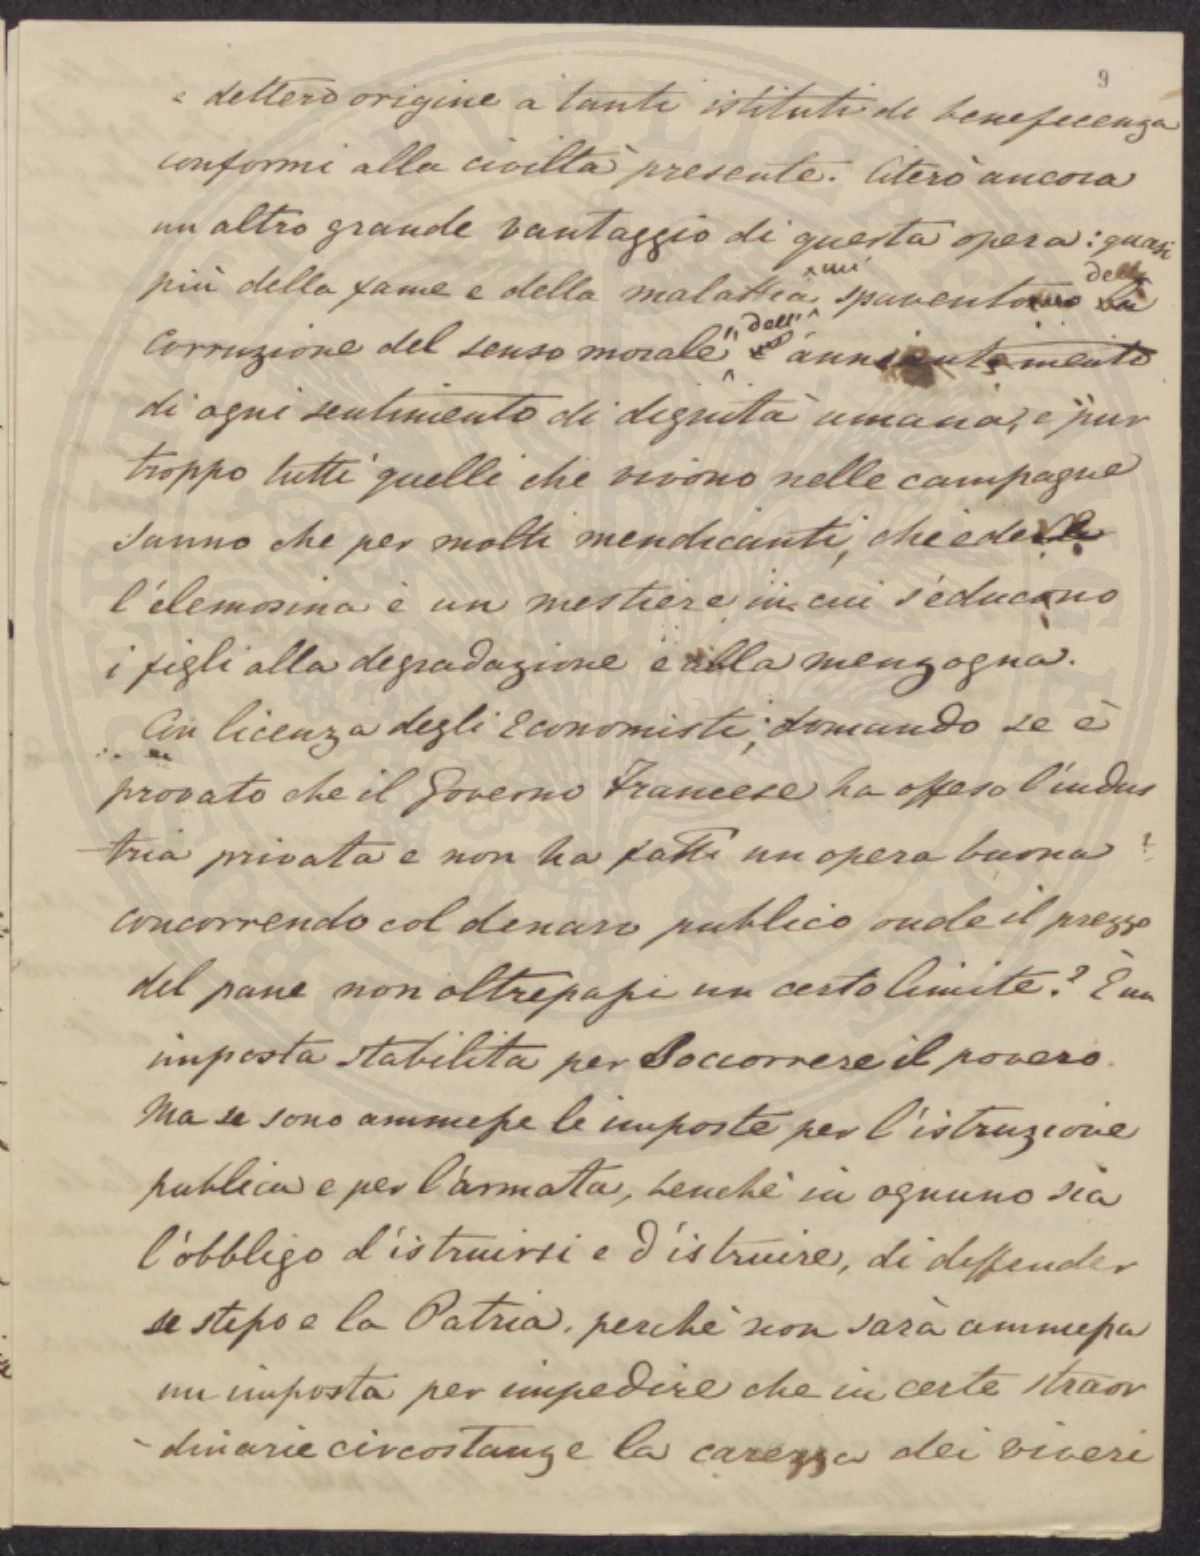 9
e dettero origine a tanti istituti di beneficenza
conformi alla civiltà presente. Citerò ancora
un altro grande vantaggio di questa opera: quasi
più della fame e della malattia mi spavento della
corruzione del senso morale, dell' annientamento
di ogni sentimento di dignità umana, e pur
troppo tutti quelli che vivono nelle campagne
sanno che per molti mendicanti, chieder
l'elemosina è un mestiere in cui s'educano
i figli alla degradazione e alla menzogna.
Con licenza degli Economisti, domando se è
provato che il Governo Francese ha offeso l'indus
tria privata e non ha fatti un opera buona
concorrendo col denaro publico onde il prezzo
del pane non oltrepassi un certo limite? È un
imposta stabilita per Soccorrere il povero.
Ma se sono ammesse le imposte per l'istruzione
publica e per l'armata, benchè in ognuno sia
l'obbligo d'istruirsi e d'istruire, di deffender
se stesso e la Patria, perchè non sarà ammessa
un imposta per impedire che in certe straor
-dinarie circostanze la carezza dei viveri